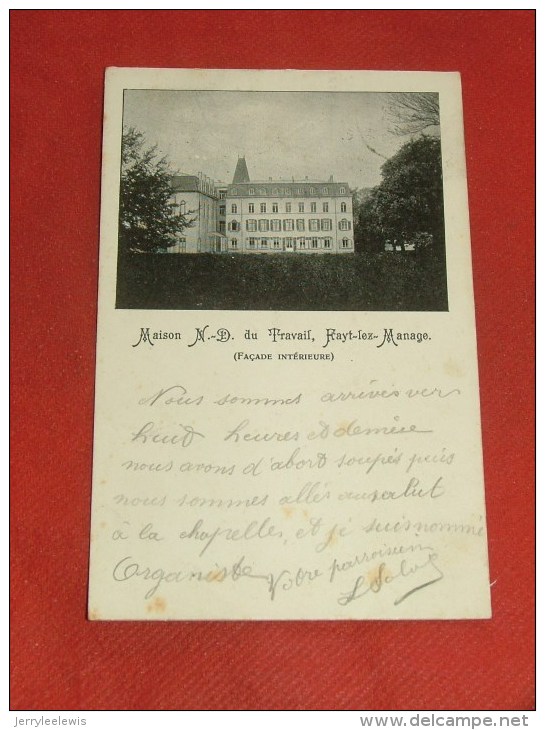 Maison N.-D. du Travail, Fayt-lez-Manage.
(FAÇADE INTÉRIEURE)
Nous sommes arrivés ver
huit heures et demie
nous avons d'abort soupés puis
nous sommes allés au salut
à la chapelle, et je suis nommé
Organiste
Votre parroissien
jerryleelewis
www.delcampe.net